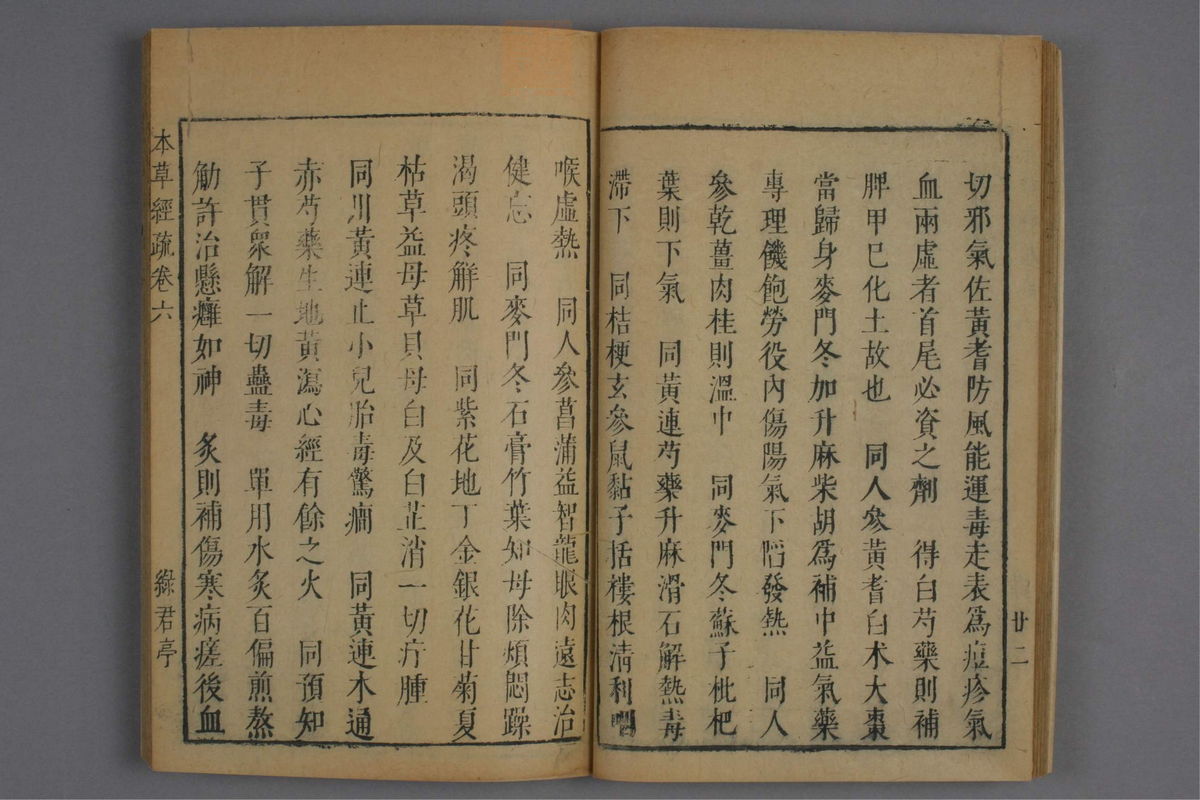 切邪氣佐黃耆防風能運毒走表爲痘疹氣
血兩虛者首尾必資之劑　得白芍藥則補
脾甲巳化土故也　同人參黃耆白术大棗
當歸身麥門冬加升麻柴胡爲補中益氣藥
專理饑飽勞役內傷陽氣下陷發熱　同人
參乾薑肉桂則溫中　同麥門冬蘇子枇杷
葉則下氣　同黃連芍藥升麻滑石解熱毒
滯下　同桔梗玄參鼠黏子括樓根清利咽
廿二
喉虛熱　同人參菖蒲益智龍眼肉遠志治
健忘　同麥門冬石膏竹葉知母除煩悶躁
渴頭疼解肌　同紫花地丁金銀花甘菊夏
枯草益母草貝母白及白芷消一切疔腫
同川黃連止小兒胎毒驚癎　同黃連木通
赤芍藥生地黃瀉心經有餘之火　同預知
子貫衆解一切蠱毒　單用水炙百徧煎熬
觔許治懸癰如神　炙則補傷寒病瘥後血
本草經疏卷六
綠君亭